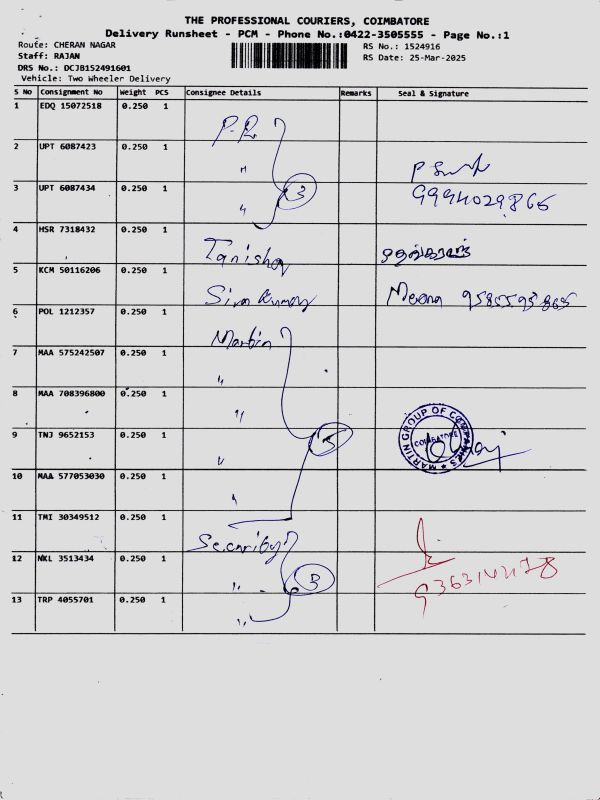 THE PROFESSIONAL COURIERS, COIMBATORE
Delivery Runsheet - PCM - Phone No.:0422-3505555 - Page No.:1
Route: CHERAN NAGAR
RS No.: 1524916
Staff: RAJAN
RS Date: 25-Mar-2025
DRS No.: DCJB152491601
Vehicle: Two Wheeler Delivery
S No Consignment No Weight PCS Consignee Details Remarks Seal & Signature
1 EDQ 15072518 0.250 1 P.R.
2 UPT 6087423 0.250 1 "
3 UPT 6087434 0.250 1 " 3 9994029866
4 HSR 7318432 0.250 1 Tanishq
5 KCM 50116206 0.250 1 Siva Kumar Meena
6 POL 1212357 0.250 1 Martin
7 MAA 575242507 0.250 1 "
8 MAA 708396800 0.250 1 "
9 TNJ 9652153 0.250 1 " 5 MARTIN GROUP OF COMPANIES COIMBATORE
10 MAA 577053030 0.250 1 "
11 TMI 30349512 0.250 1 Security
12 NKL 3513434 0.250 1 " 3
13 TRP 4055701 0.250 1 "